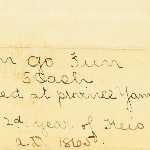 n Go Fun
5 Each
ed at province Yam
2d. year of Keio
a.D. 1865.